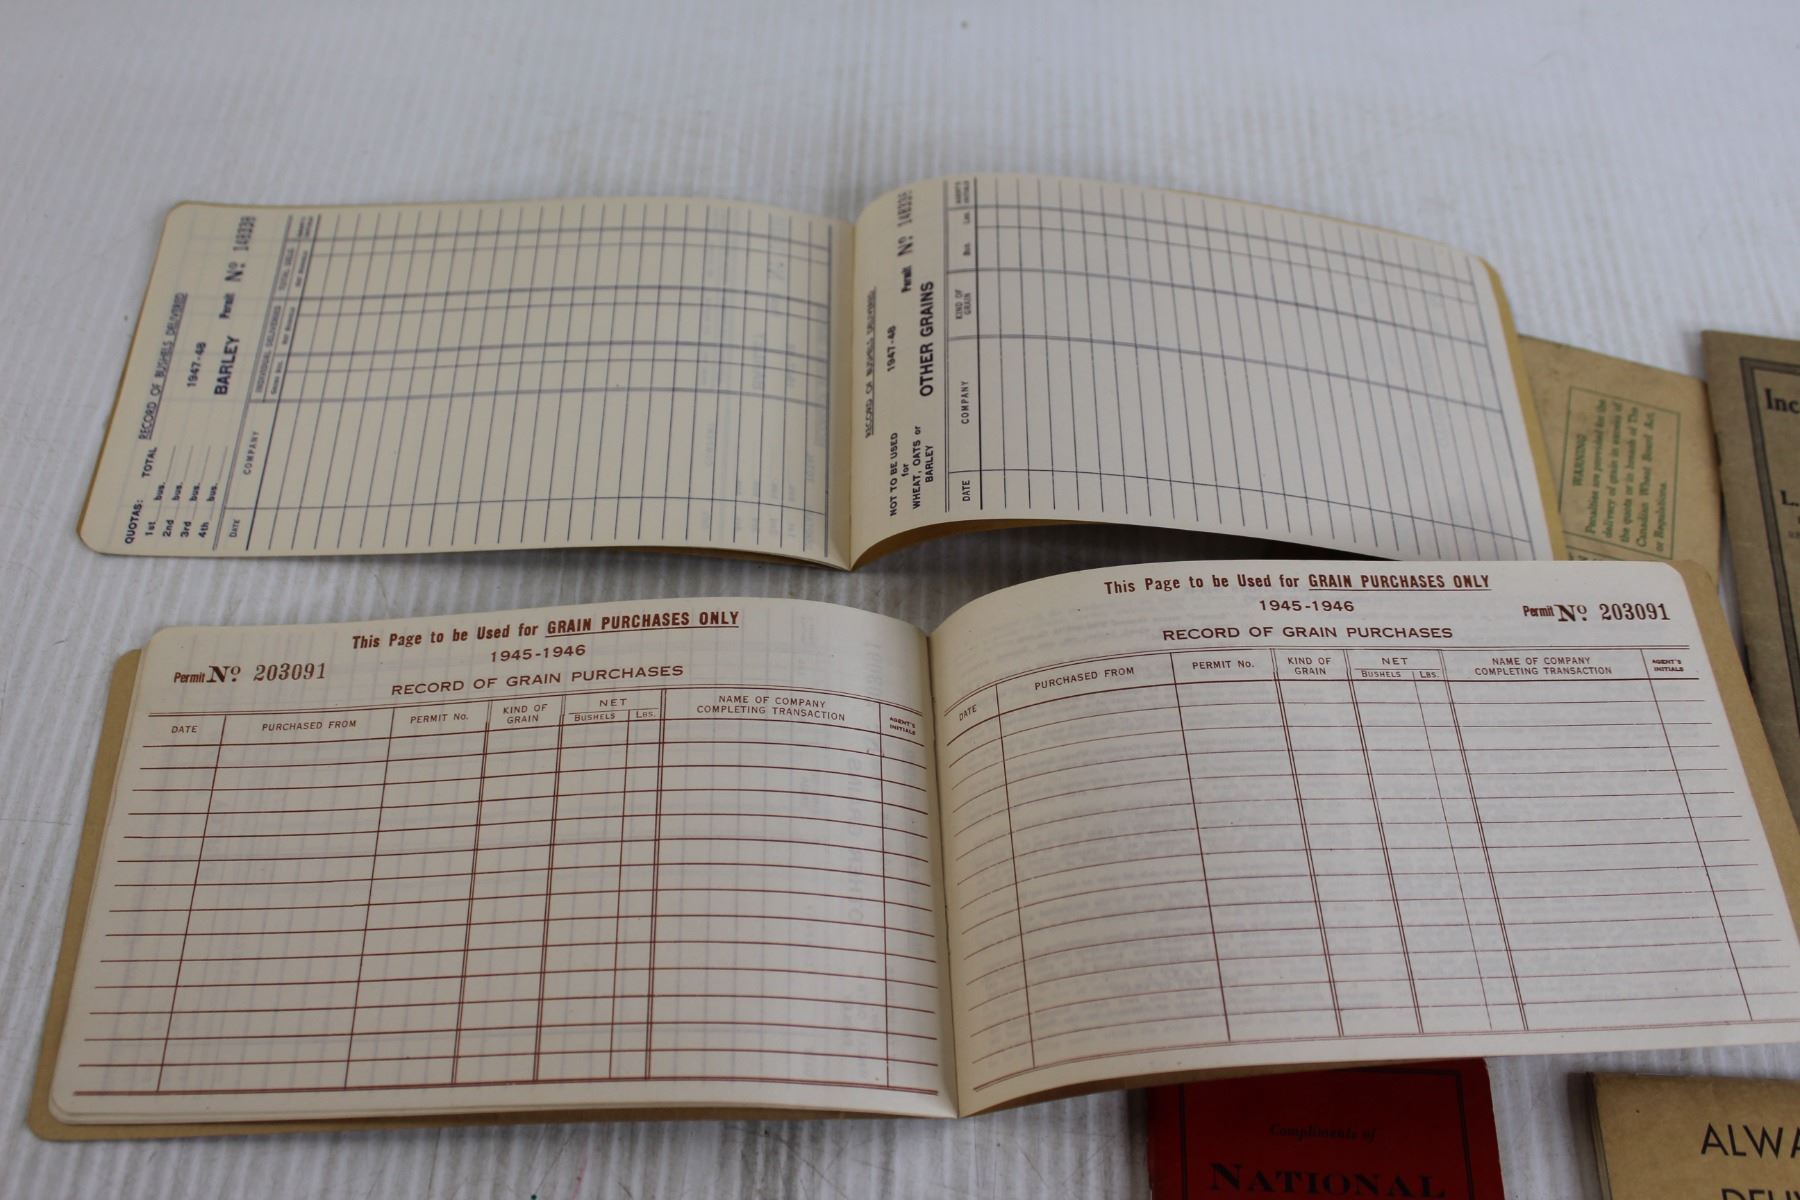 QUOTAS: TOTAL RECORD OF BUSHELS DELIVERED
1st bus.
2nd bus.
3rd bus. 1947-48
4th bus. BARLEY Permit No 148338
DATE COMPANY INDIVIDUAL DELIVERED
RECORD OF BUSHELS DELIVERED
NOT TO BE USED 1947-48 Permit No
for
WHEAT, OATS or OTHER GRAINS
BARLEY
DATE COMPANY KIND OF GRAIN Bus. Lbs. AGENT'S INITIALS
WARNING
Penalties are provided for the
delivery of grain in excess of
the quota or in breach of The
Canadian Wheat Board Act,
or Regulations.
Inc
L.
This Page to be Used for GRAIN PURCHASES ONLY
1945-1946
Permit No 203091
RECORD OF GRAIN PURCHASES
DATE PURCHASED FROM PERMIT No. KIND OF GRAIN NET BUSHELS LBS. NAME OF COMPANY COMPLETING TRANSACTION AGENT'S INITIALS
This Page to be Used for GRAIN PURCHASES ONLY
1945-1946
Permit No 203091
RECORD OF GRAIN PURCHASES
DATE PURCHASED FROM PERMIT No. KIND OF GRAIN NET BUSHELS LBS. NAME OF COMPANY COMPLETING TRANSACTION AGENT'S INITIALS
Compliments of
NATIONAL
ALWA